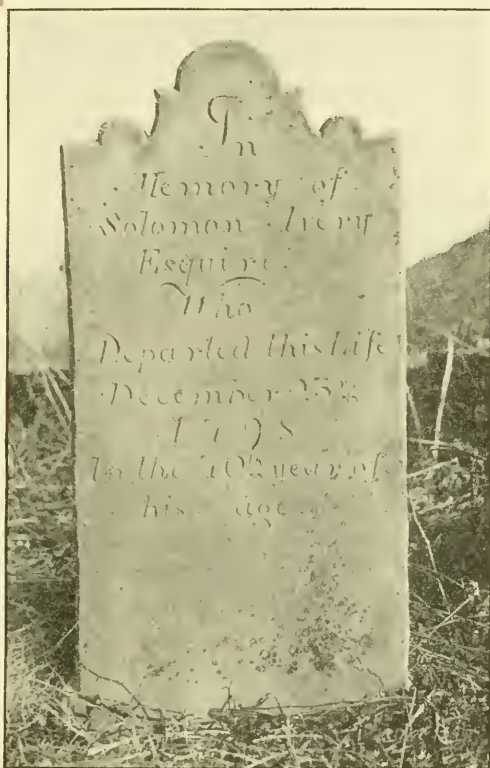 In
Memory of
Solomon Avery
Esquire
Who
Departed this Life
December
1798
In the year of
his age